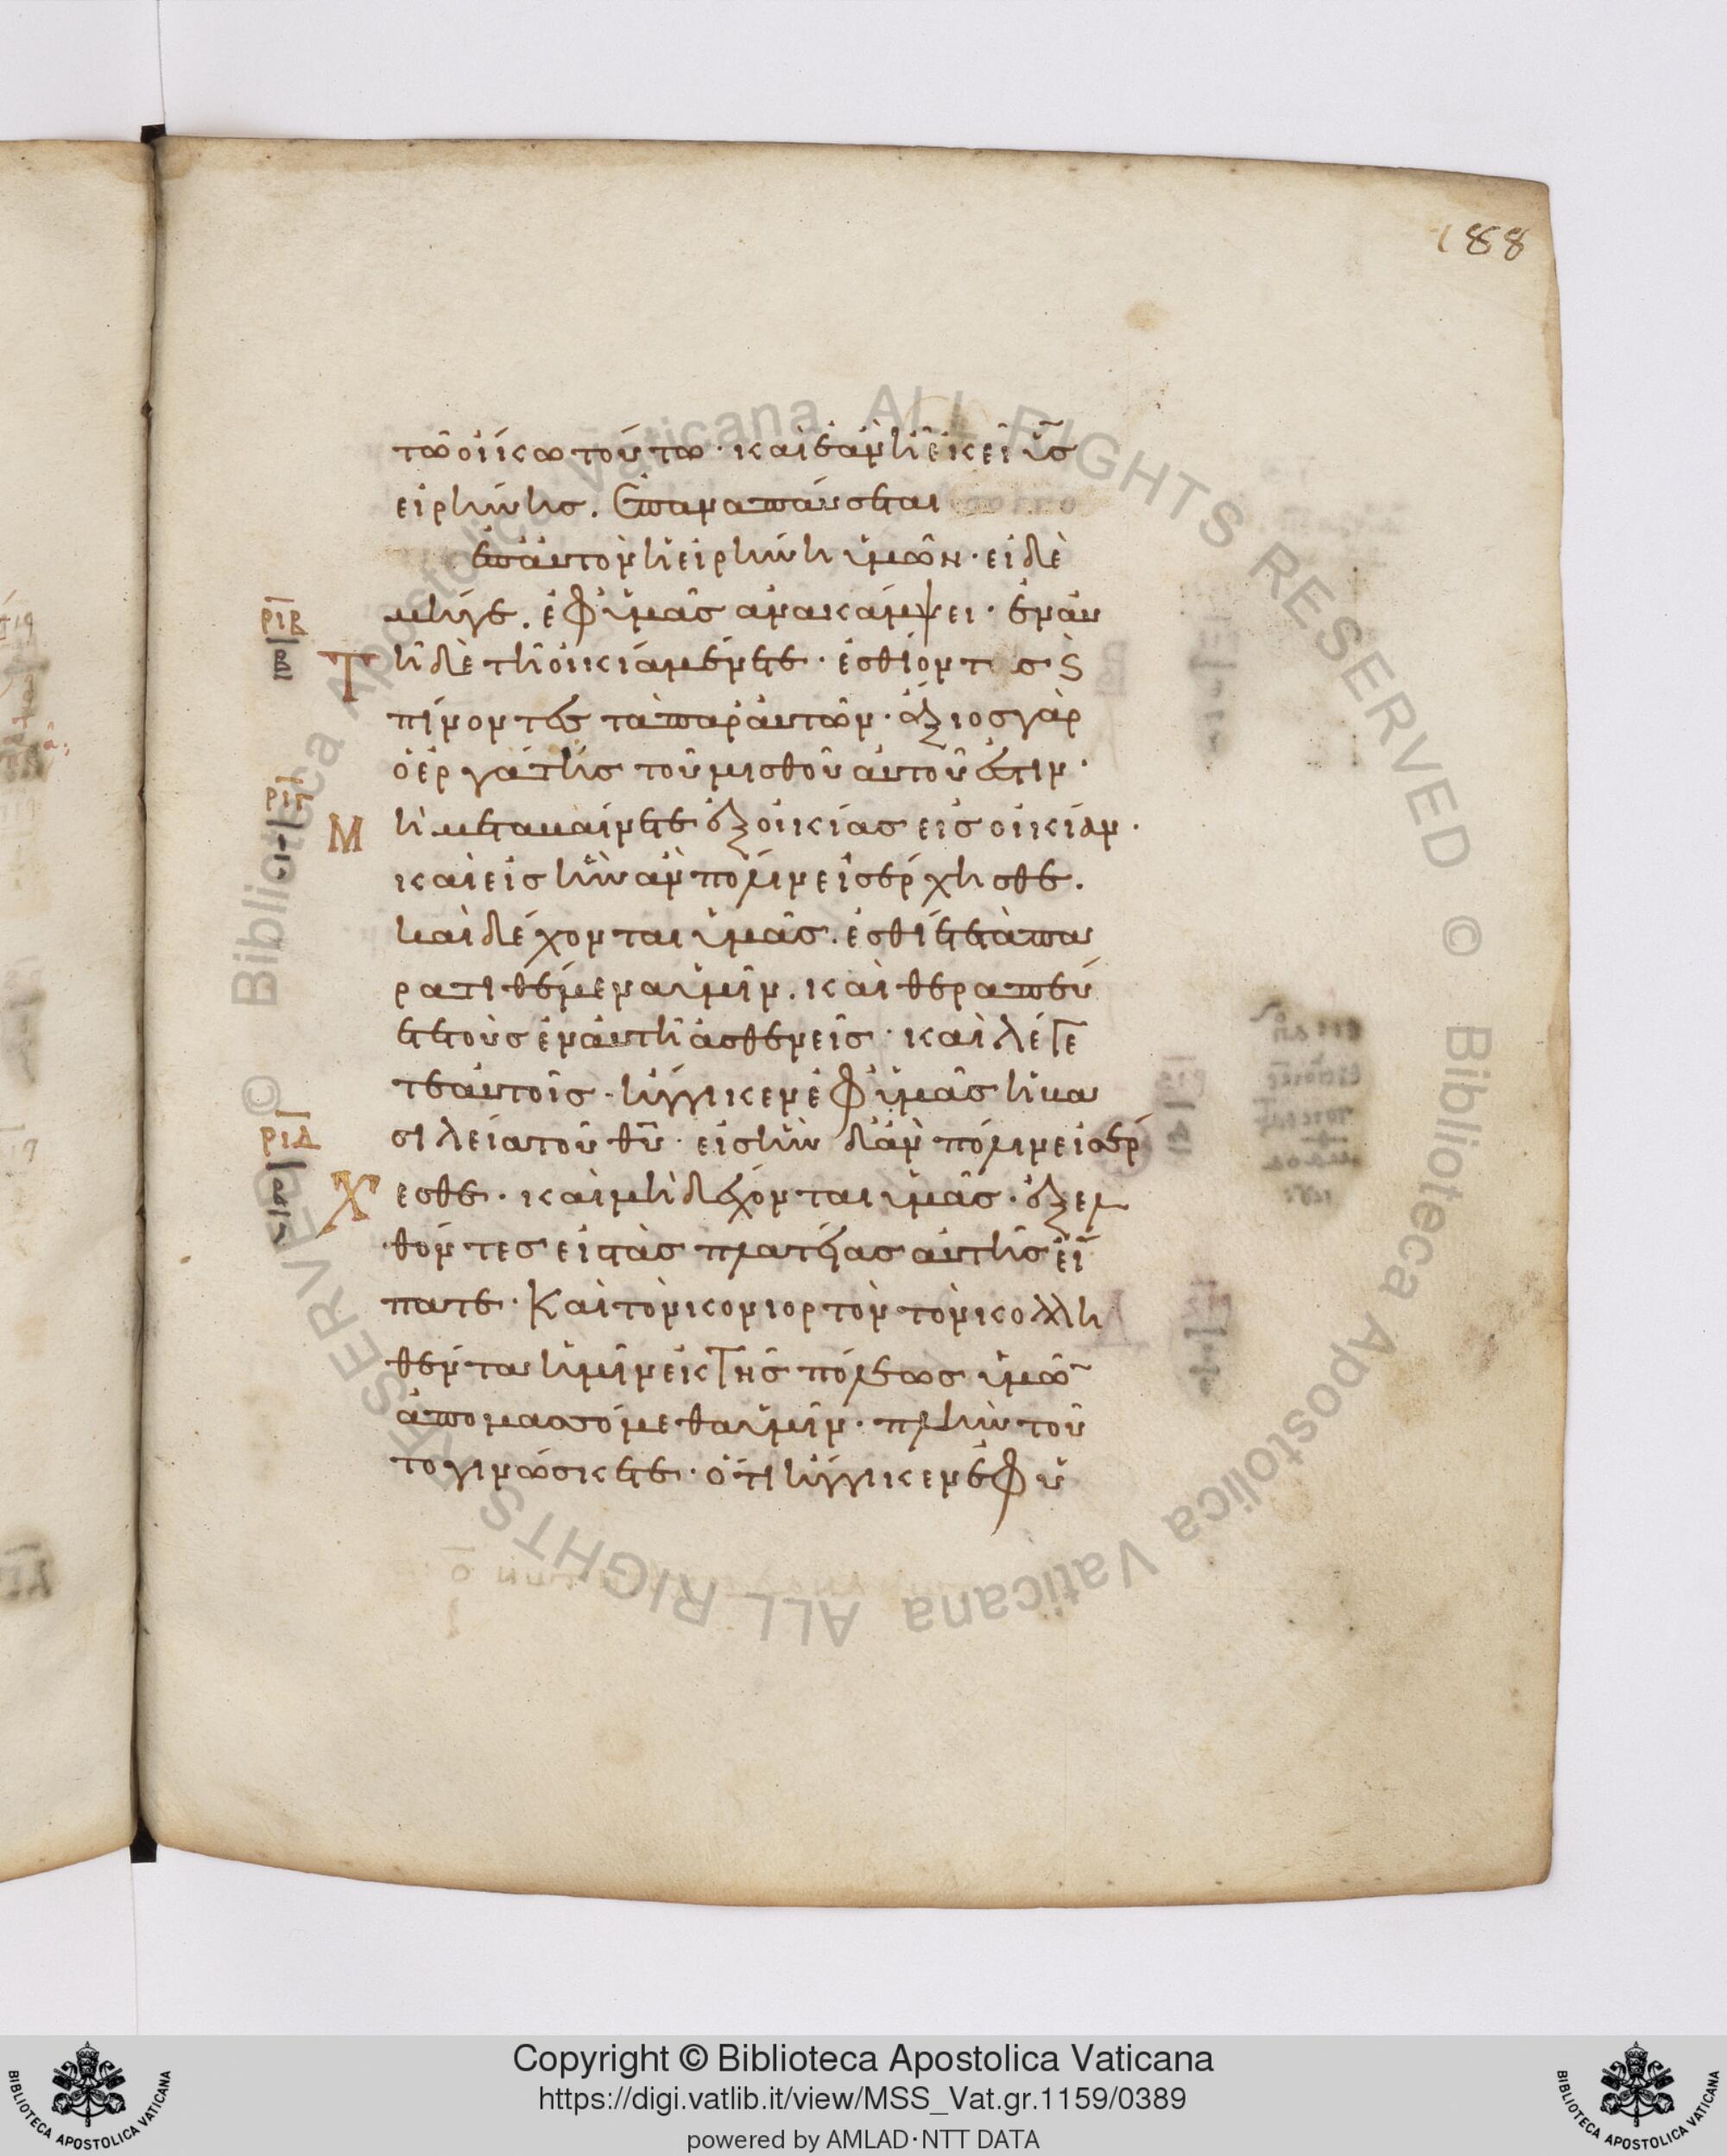 188
τῶ οἴκω τούτω· καὶ ἐὰν ἦ ἐκεῖ ὑς
εἰρήνης. ἐπαναπαύσεται
ἐπ' αὐτὸν ἡ εἰρήνη ὑμῶν· εἰ δὲ
μήγε. ἐφ' ὑμᾶς ἀνακάμψει· ἐν αὐ
ριβ
β
Τῆ δὲ τῆ οἰκία μένετε· ἐσθίοντες ϛ
πίνοντες τὰ παρ' αὐτῶν· ἄξιος γὰρ
ὁ ἐργάτης τοῦ μισθοῦ αὐτοῦ ἐστιν·
ριγ
Μὴ μεταβαίνετε ἐξ οἰκίας εἰς οἰκίαν·
καὶ εἰς ἣν ἂν πόλιν εἰσέρχησθε.
καὶ δέχονται ὑμᾶς. ἐσθίετε τὰ πα
ρατιθέμενα ὑμῖν. καὶ θεραπεύ
ετε τοὺς ἐν αὐτῆ ἀσθενεῖς· καὶ λέγε
τε αὐτοῖς· ἤγγικεν ἐφ' ὑμᾶς ἡ βα
σιλεία τοῦ θυ· εἰς ἣν δ' ἂν πόλιν εἰσέρ
ριδ
Χεσθε· καὶ μὴ δέχονται ὑμᾶς· ἐξελ
θόντες εἰς τὰς πλατείας αὐτῆς εἴ
πατε· Καὶ τὸν κονιορτὸν τὸν κολλη
θέντα ἡμῖν ἐκ τῆς πόλεως ὑμῶ
ἀπομασσόμεθα ὑμῖν· πλὴν τοῦ
το γινώσκετε· ὅτι ἤγγικεν ἐφ' ὑ
© Biblioteca Apostolica Vaticana ALL RIGHTS RESERVED © Biblioteca Apostolica Vaticana ALL RIGHTS RESERVED
Copyright © Biblioteca Apostolica Vaticana
https://digi.vatlib.it/view/MSS_Vat.gr.1159/0389
powered by AMLAD·NTT DATA
BIBLIOTECA APOSTOLICA VATICANA
BIBLIOTECA APOSTOLICA VATICANA